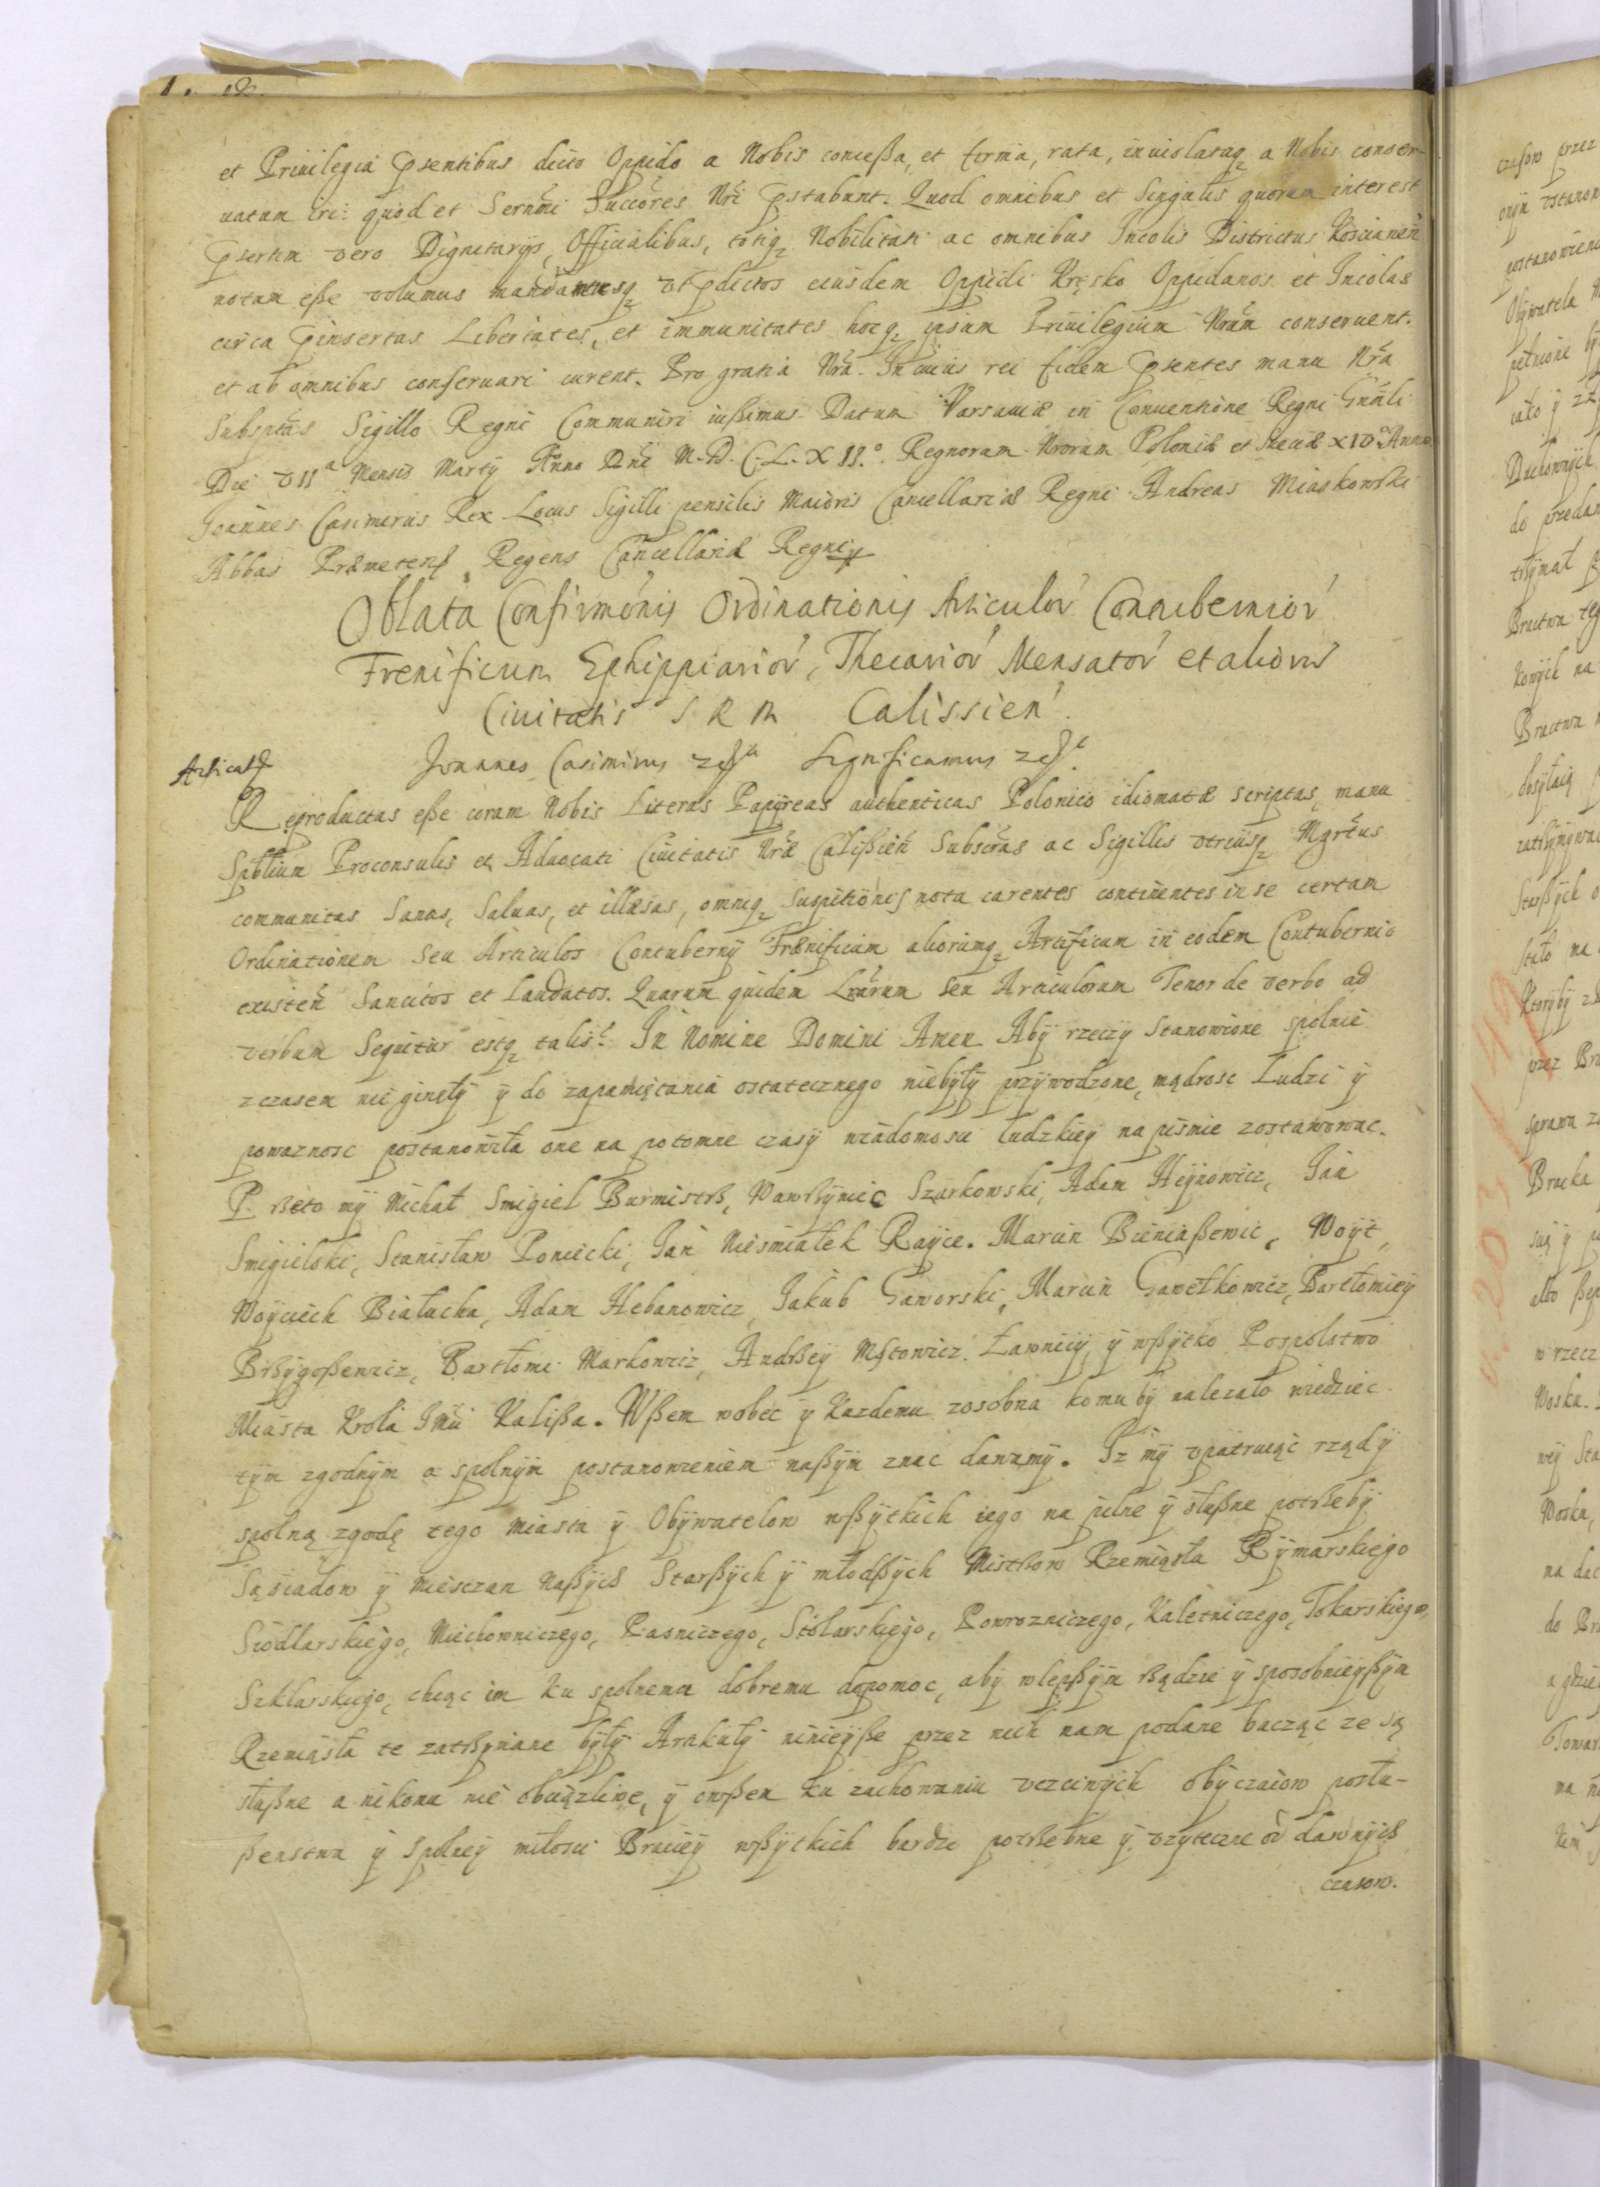 et Priuilegia pñsentibus dicto Oppido a Nobis conceßa, et firma, rata, inuiolataq̃ a Nobis conser-
uatum iri: quod et Sernm̃i Succõres Nr̃i pstabunt. Quod omnibus et Singulis quorum interest
psertim vero Dignitarijs, Officialibus, totiq̃ Nobilitati ac omnibus Incolis Districtus Koscianeñ
notum eße volumus mandamusq̃ vt pdictos eiusdem Oppidi Kręsko Oppidanos et Incolas
circa pinsertas Libertates, et immunitates hocq̃ ipsum Priuilegium Nrũm conseruent.
et ab omnibus conseruari curent. Pro gratia Nr̃a. In cuius rei fidem psentes manu Nr̃a
Subsptãs Sigillo Regni Communiri iußimus. Datum Varsauiæ in Conuentione Regni Gnãli
Die VII a Mensis Martij Anno Dñi M.D.C.L.XII.o Regnorum Nrorum Poloniæ et Sueciæ XIV o Anno
Joannes Casimirus Rex Locus Sigilli pensilis Maioris Cancellariæ Regni Andreas Miaskowski
Abbas Præmeteñ, Regens Cancellariæ Regni
Oblata Confirmõnis Ordinationis Articulor̃ Contubernior̃
Frenificum Ephippiarior̃, Thecarior̃ Mensator̃ et aliorum
Ciuitatis S R M Calissieñ.
Articuł
Joannes Casimirus etc. Significamus etc.
Reproductas eße coram Nobis Literas Papyreas authenticas Polonico idiomate scriptas, manu
Spblium Proconsulis et Aduocati Ciuitatis Nræ Calißieñ Subscr̃as ac Sigillis vtriusq̃ Mgrt̃us
communitas Sanas, Saluas, et illæsas, omniq̃ Suspitionis nota carentes continentes in se certam
Ordinationem seu Articulos Contubernij Frænificum aliorumq̃ Artificum in eodem Contubernio
existeñ Sancitos et Laudatos. Quarum quidem Lrãrum seu Articulorum Tenor de verbo ad
verbum Sequitur estq̃ talis. In Nomine Domini Amen Aby rzeczy stanowione spolnie
z czasem nie ginęły ÿ do zapamiętania ostatecznego niebyły przywodzone, mądrosc Ludzi ÿ
powaznosc postanowiła one na potomne czasy wiadomosci ludzkiey na pismie zostawowac.
P. ßeto my Michał Smigiel Burmistrß, Wawrßyniec Szurkowski, Adam Heynowicz, Jan
Smigielski, Stanisław Poniecki, Jan Niesmiałek Rayce. Marcin Bieniaßewic, Woyt,
Woyciech Białucha, Adam Hebanowicz, Jakub Gaworski, Marcin Gawełkowicz, Bartłomiey
Brßygoßewicz, Bartłomi Markowicz, Andrßey Mętowicz Ławnicy ÿ wßytko Pospolstwo
Miasta Krola JMci Kalißa. Wßem wobec ÿ Kazdemu zosobna komu by nalezało wiedziec
tym zgodnym a spolnym postanowieniem naßym znac dawamy. Iz my vpatruiąc rządy
spolną zgodę tego miasta ÿ Obywatelow wßytkich iego na pilne ÿ słußne potrßeby
Sąsiadow ÿ Miesczan Naßych Starßych ÿ młodßych Mistrßow Rzemięsła Rymarskiego
Siodlarskiego, Miechowniczego, Paśniczego, Stolarskiego, Powrozniczego, Kaletniczego, Tokarskiego,
Szklarskiego, chcąc im ku spolnemu dobremu dopomoc, aby wlepßym rßądzie ÿ sposobnieyßym
Rzemięsła te zatrßymane były Artykuły ninieyße przez nich nam podane bacząc ze są
słußne a nikomu nie obciązliwe, ÿ owßem ku zachowaniu vczciwych obyczaiow posłu-
ßenstwa ÿ Spolney miłosci Braciey wßytkich bardzo potrßebne ÿ vzyteczne od dawnych
czasow.